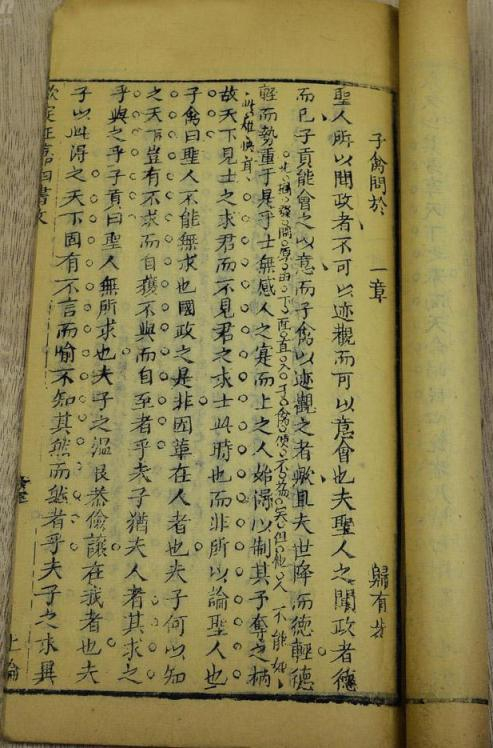 子禽問於 一章 歸有光
聖人所以聞政者不可以迹觀而可以意會也夫聖人之聞政者德
而已子貢能會之以意而子禽以迹觀之者歟且夫世降而德輕德
輕而勢重于是乎士無感人之寔而上之人始得以制其予奪之柄
故天下見士之求君而不見君之求士此時也而非所以論聖人也
子禽曰聖人不能無求也國政之是非因革在人者也夫子何以知
之天下豈有不求而自獲不與而自至者乎夫子猶夫人者其求之
乎與之乎子貢曰聖人無所求也夫子之溫良恭儉讓在我者也夫
子以此得之天下固有不言而喻不知其然而然者乎夫子之求異
欽定正嘉四書文
上論